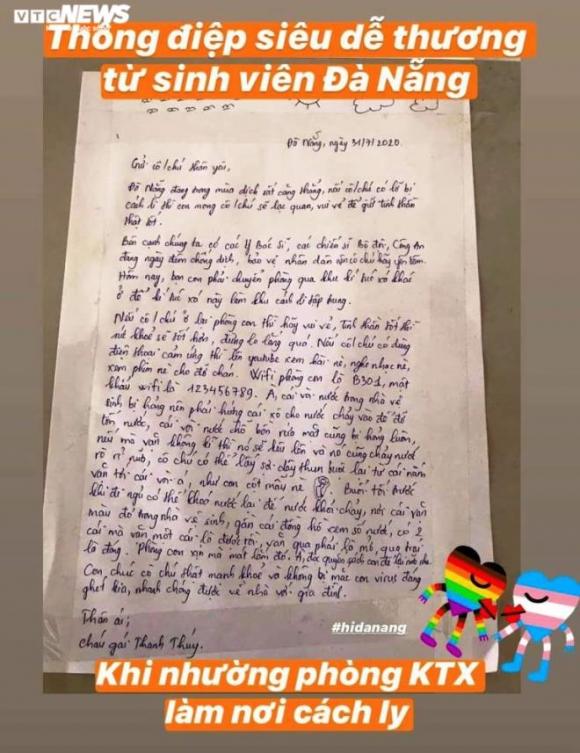 VTC NEWS
Thông điệp siêu dễ thương
từ sinh viên Đà Nẵng
Đà Nẵng, ngày 31/7/2020.
Gửi cô/chú thân yêu,
Đà Nẵng đang trong mùa dịch rất căng thẳng, nên cô/chú có lỡ bị
cách li thì con mong cô/chú sẽ lạc quan, vui vẻ để giữ tinh thần
thật tốt.
Bên cạnh chúng ta có các Y Bác Sĩ, các chiến sĩ Bộ đội, Công An
đang ngày đêm chống dịch, bảo vệ nhân dân nên cô chú hãy yên tâm.
Hôm nay, bọn con phải chuyển phòng qua khu kí túc xá khác
ở để kí túc xá này làm khu cách li tập trung.
Nếu cô/chú ở lại phòng con thì hãy vui vẻ, tinh thần tốt thì
sức khoẻ sẽ tốt hơn, đừng lo lắng quá. Nếu cô/chú có dùng
điện thoại cảm ứng thì lên youtube xem hài nè, nghe nhạc nè,
xem phim nè cho đỡ chán. Wifi phòng con là B301, mật
khẩu wifi là 123456789. À, cái vòi nước trong nhà vệ
sinh bị hỏng nên phải hứng cái xô cho nước chảy vào đó để
tốn nước, cái vòi nước chỗ bồn rửa mặt cũng bị hỏng luôn,
nếu mà vặn không kĩ thì nó sẽ kêu lên và nó cũng chảy nước
rò rỉ nữa, cô chú có thể lấy sợi dây thun buộc lại từ cái nắm
vặn tới cái vòi ạ, như con cột mẫy nè Buổi tối trước
khi đi ngủ có thể khoá nước lại để nước khỏi chảy, nơi cái vặn
màu đỏ trong nhà vệ sinh, gần cái đồng hồ xem số nước, có 2
cái mà vặn một cái là được rồi, vặn qua phải là mở, qua trái
là đóng. Phòng con xịn mà mát lắm đó. À, đọc quyển sách con để
Con chúc cô chú thật mạnh khoẻ và không bị mắc con virus đáng
ghét kia, nhanh chóng được về nhà với gia đình.
Thân ái,
cháu gái Thanh Thuý.
#hidanang
Khi nhường phòng KTX
làm nơi cách ly